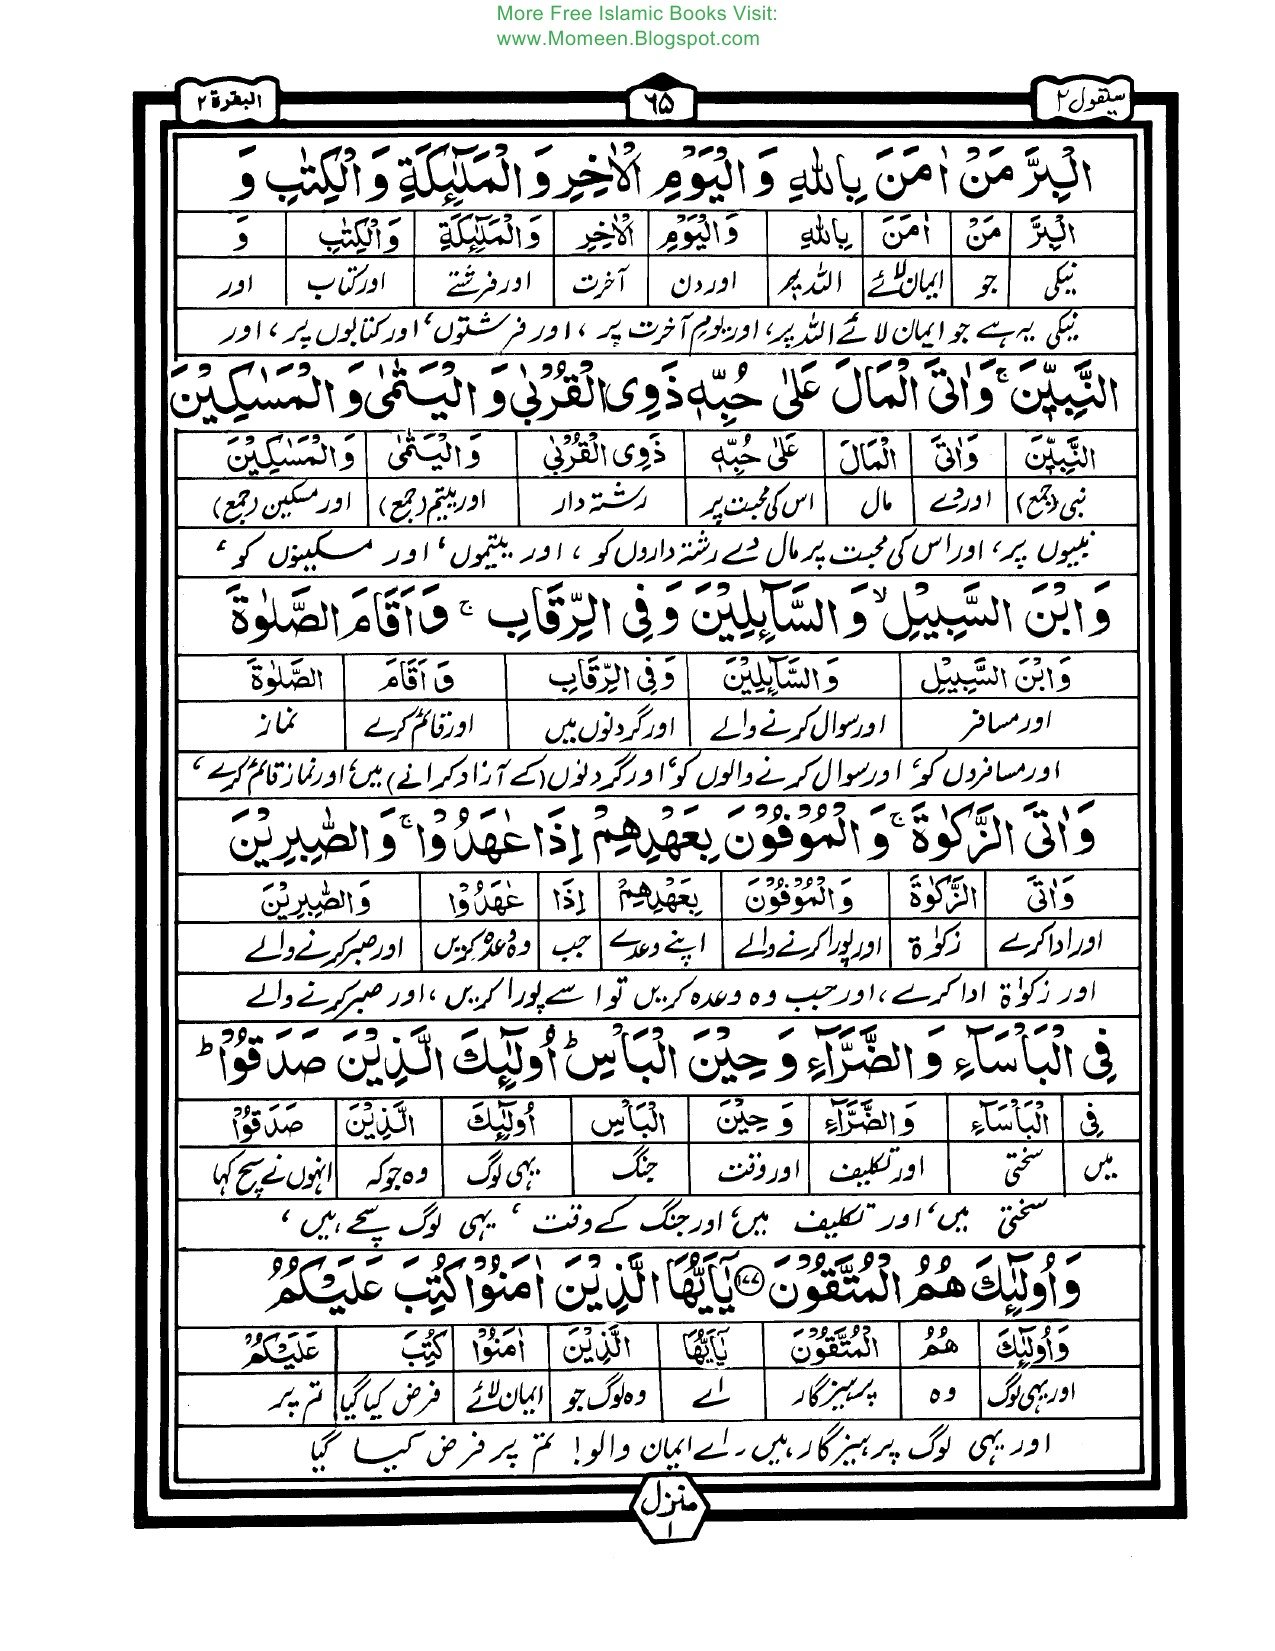 More Free Islamic Books Visit:
www.Momeen.Blogspot.com
سيقول ٢ ٦٥ البقرة ٢
الْبِرَّ مَنْ اٰمَنَ بِاللّٰهِ وَ الْيَوْمِ الْاٰخِرِ وَ الْمَلٰٓئِكَةِ وَ الْكِتٰبِ وَ
الْبِرَّ مَنْ اٰمَنَ بِاللّٰهِ وَالْيَوْمِ الْاٰخِرِ وَالْمَلٰٓئِكَةِ وَالْكِتٰبِ وَ
نیکی جو ایمان لائے اللہ پر اور دن آخرت اور فرشتے اور کتاب اور
نیکی یہ ہے جو ایمان لائے اللہ پر، اور یومِ آخرت پر، اور فرشتوں، اور کتابوں پر، اور
النَّبِيّٖنَ ۚ وَ اٰتَى الْمَالَ عَلٰى حُبِّهٖ ذَوِى الْقُرْبٰى وَ الْيَتٰمٰى وَ الْمَسٰكِيْنَ
النَّبِيّٖنَ وَاٰتَى الْمَالَ عَلٰى حُبِّهٖ ذَوِى الْقُرْبٰى وَ الْيَتٰمٰى وَ الْمَسٰكِيْنَ
نبی (جمع) اور دے مال اس کی محبت پر رشتہ دار اور یتیم (جمع) اور مسکین (جمع)
نبیوں پر، اور اس کی محبت پر مال دے رشتہ داروں کو، اور یتیموں، اور مسکینوں کو،
وَ ابْنَ السَّبِيْلِ ۙ وَ السَّآئِلِيْنَ وَ فِى الرِّقَابِ ۚ وَ اَقَامَ الصَّلٰوةَ
وَ ابْنَ السَّبِيْلِ وَ السَّآئِلِيْنَ وَ فِى الرِّقَابِ وَ اَقَامَ الصَّلٰوةَ
اور مسافر اور سوال کرنے والے اور گردنوں میں اور قائم کرے نماز
اور مسافروں کو، اور سوال کرنے والوں کو، اور گردنوں (کے آزاد کرانے) میں، اور نماز قائم کرے،
وَ اٰتَى الزَّكٰوةَ ۚ وَ الْمُوْفُوْنَ بِعَهْدِهِمْ اِذَا عٰهَدُوْا ۚ وَ الصّٰبِرِيْنَ
وَ اٰتَى الزَّكٰوةَ وَ الْمُوْفُوْنَ بِعَهْدِهِمْ اِذَا عٰهَدُوْا وَ الصّٰبِرِيْنَ
اور ادا کرے زکوٰۃ اور پورا کرنے والے اپنے وعدے جب وہ وعدہ کریں اور صبر کرنے والے
اور زکوٰۃ ادا کرے، اور جب وہ وعدہ کریں تو اسے پورا کریں، اور صبر کرنے والے
فِى الْبَاْسَآءِ وَ الضَّرَّآءِ وَ حِيْنَ الْبَاْسِ ؕ اُولٰٓئِكَ الَّذِيْنَ صَدَقُوْا ؕ
فِى الْبَاْسَآءِ وَ الضَّرَّآءِ وَ حِيْنَ الْبَاْسِ اُولٰٓئِكَ الَّذِيْنَ صَدَقُوْا
میں سختی اور تکلیف اور وقت جنگ یہی لوگ وہ جو کہ انہوں نے سچ کہا
سختی میں، اور تکلیف میں، اور جنگ کے وقت، یہی لوگ سچے ہیں،
وَ اُولٰٓئِكَ هُمُ الْمُتَّقُوْنَ ١٧٧ يٰٓاَيُّهَا الَّذِيْنَ اٰمَنُوْا كُتِبَ عَلَيْكُمُ
وَ اُولٰٓئِكَ هُمُ الْمُتَّقُوْنَ يٰٓاَيُّهَا الَّذِيْنَ اٰمَنُوْا كُتِبَ عَلَيْكُمُ
اور یہی لوگ وہ پرہیزگار اے وہ لوگ جو ایمان لائے فرض کیا گیا تم پر
اور یہی لوگ پرہیزگار ہیں۔ اے ایمان والو! تم پر فرض کیا گیا
منزل ١